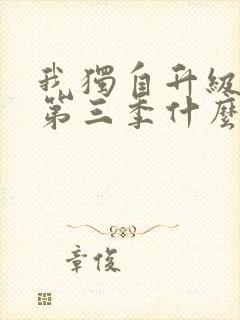 我獨自升級
第三季什麼
章俊